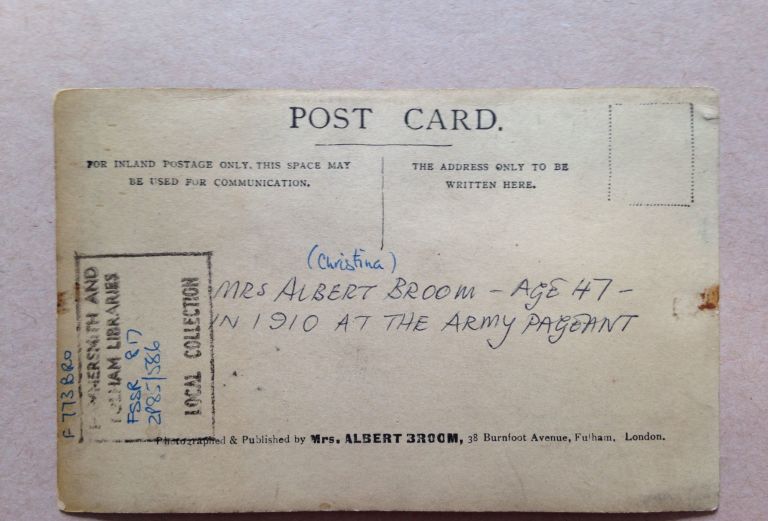 POST CARD.
FOR INLAND POSTAGE ONLY. THIS SPACE MAY
BE USED FOR COMMUNICATION.
THE ADDRESS ONLY TO BE
WRITTEN HERE.
(Christina)
MRS ALBERT BROOM - AGE 47 -
IN 1910 AT THE ARMY PAGEANT
F 773 BRO
HAMMERSMITH AND
FULHAM LIBRARIES
FSSR 817
2P85/586
LOCAL COLLECTION
Photographed & Published by Mrs. ALBERT BROOM, 38 Burnfoot Avenue, Fulham, London.